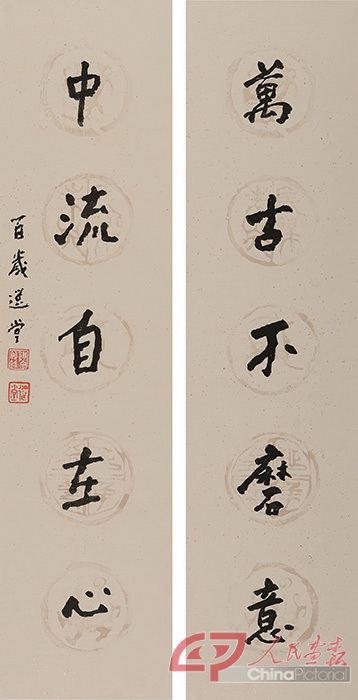 萬古不磨意
中流自在心
百歲選堂
人民画报
ChinaPictorial